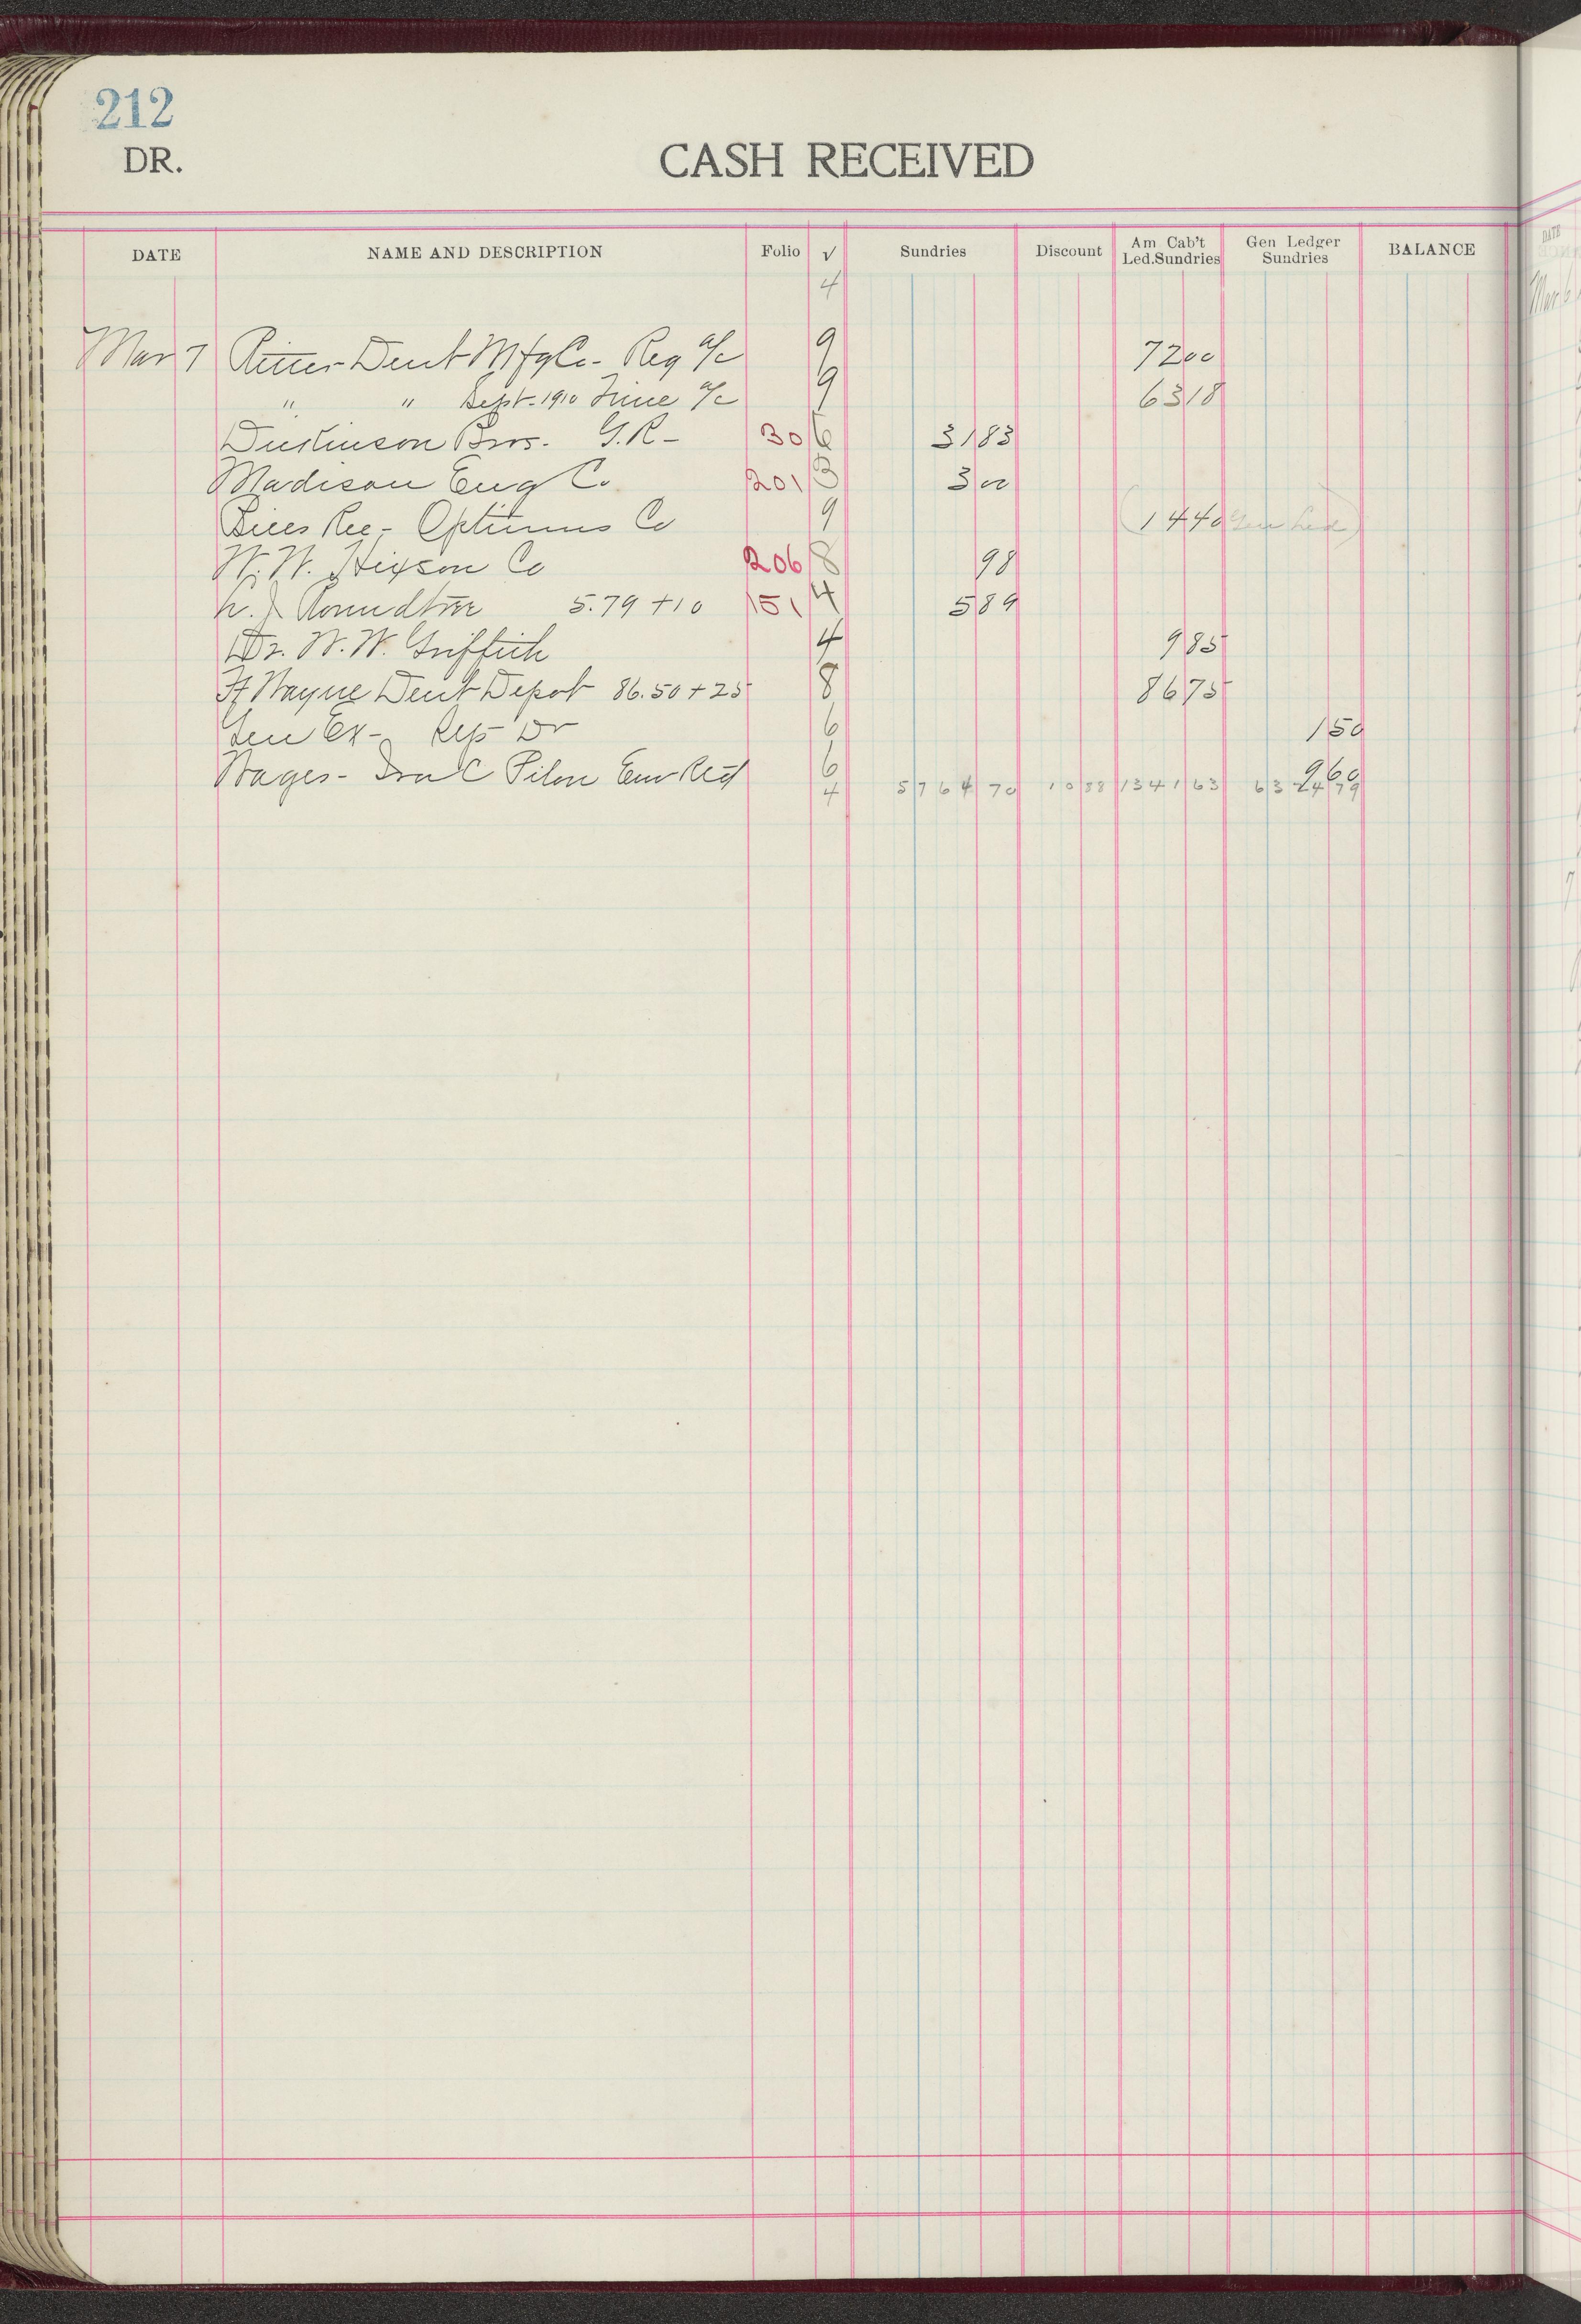 212
DR.
CASH RECEIVED
DATE NAME AND DESCRIPTION Folio √ Sundries Discount Am Cab't Led.Sundries Gen Ledger Sundries BALANCE
4
Mar 7 Ritter Dent Mfg Co - Reg a/c 9 72 00
" " Sept. 1910 Time a/c 9 63 18
Dickinson Bros. G.R - 30 6 31 83
Madison Eng Co 201 3 3 00
Bills Rec - Optimus Co 9 (14 40 Gen Led)
W. W. Hixson Co 206 8 98
L. J. Roundtree 5.79 + 10 151 4 5 89
Dr. W. W. Griffith 4 9 85
Ft Wayne Dent Depot 86.50 + 25 8 86 75
Gen Ex - Rep Dr 6 1 50
Wages - Ira C Pilon Env Retd 6 9 60
4 5764 70 10 88 1341 63 63 24 79